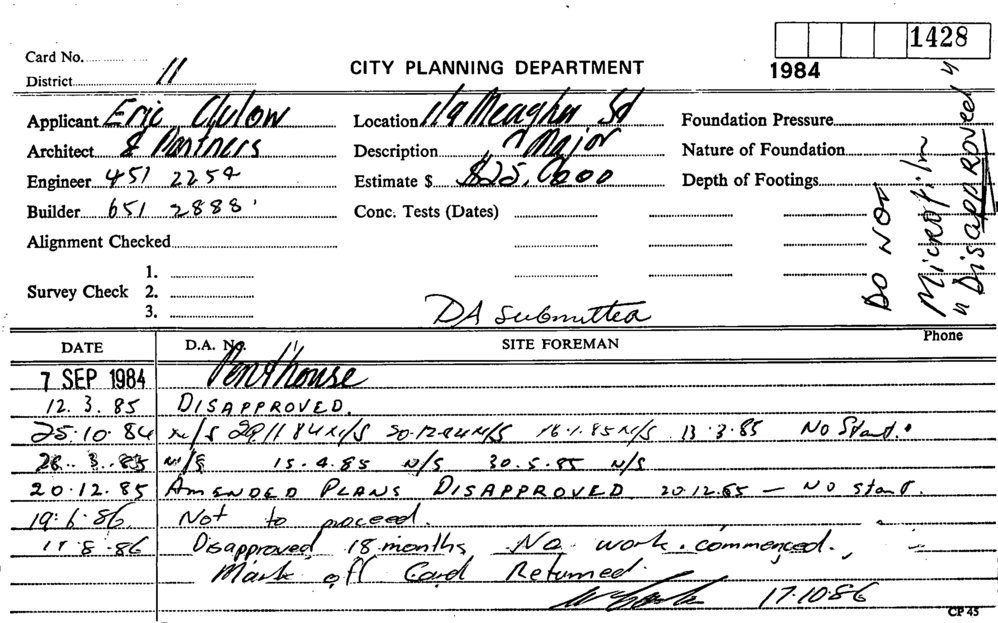 1428
Card No.
District 11
CITY PLANNING DEPARTMENT
1984
Applicant Eric Clulow Location 119 Meagher St Foundation Pressure
Architect & Partners Description Major Nature of Foundation
Engineer 451 2254 Estimate $ $25,000 Depth of Footings
Builder 651 2888 Conc. Tests (Dates)
Alignment Checked
1.
Survey Check 2.
3.
DO NOT
Microfilm
Disapproved
DA Submitted
DATE D.A. No. SITE FOREMAN Phone
7 SEP 1984 "Penthouse
12. 3. 85 DISAPPROVED.
25.10.84 N/S 29.11.84 N/S 20.12.84 N/S 16.1.85 N/S 13.3.85 No Start.
28.3.85 N/S 15.4.85 N/S 30.5.85 N/S
20.12.85 AMENDED PLANS DISAPPROVED 20.12.85 — No start.
19.6.86 Not to proceed.
8.86 Disapproved 18 months, No work commenced.
Mark off Card Returned.
17.10.86
CP 45